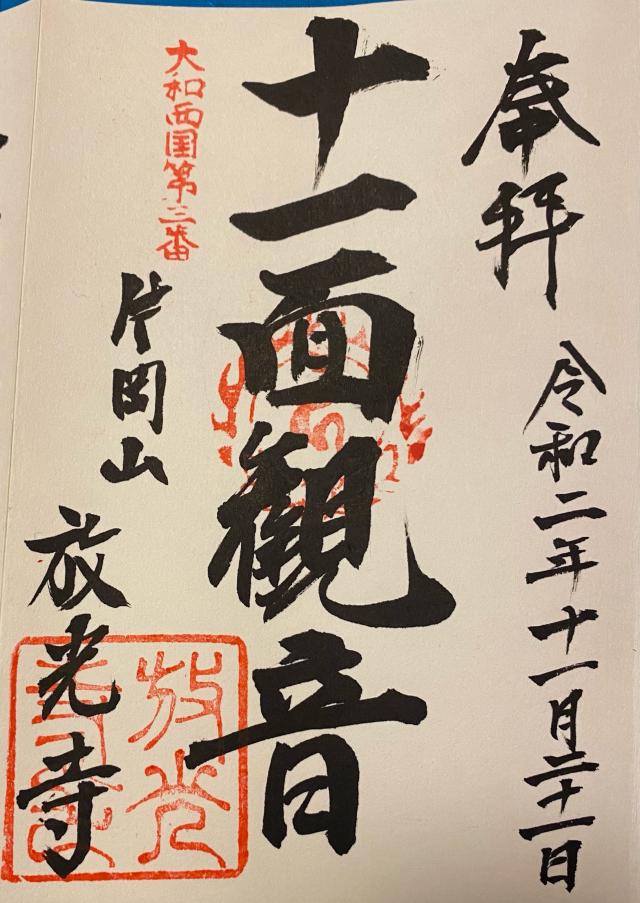 奉拝
令和二年十一月二十一日
十一面観音
大和西国第三番
片岡山
放光寺
放光